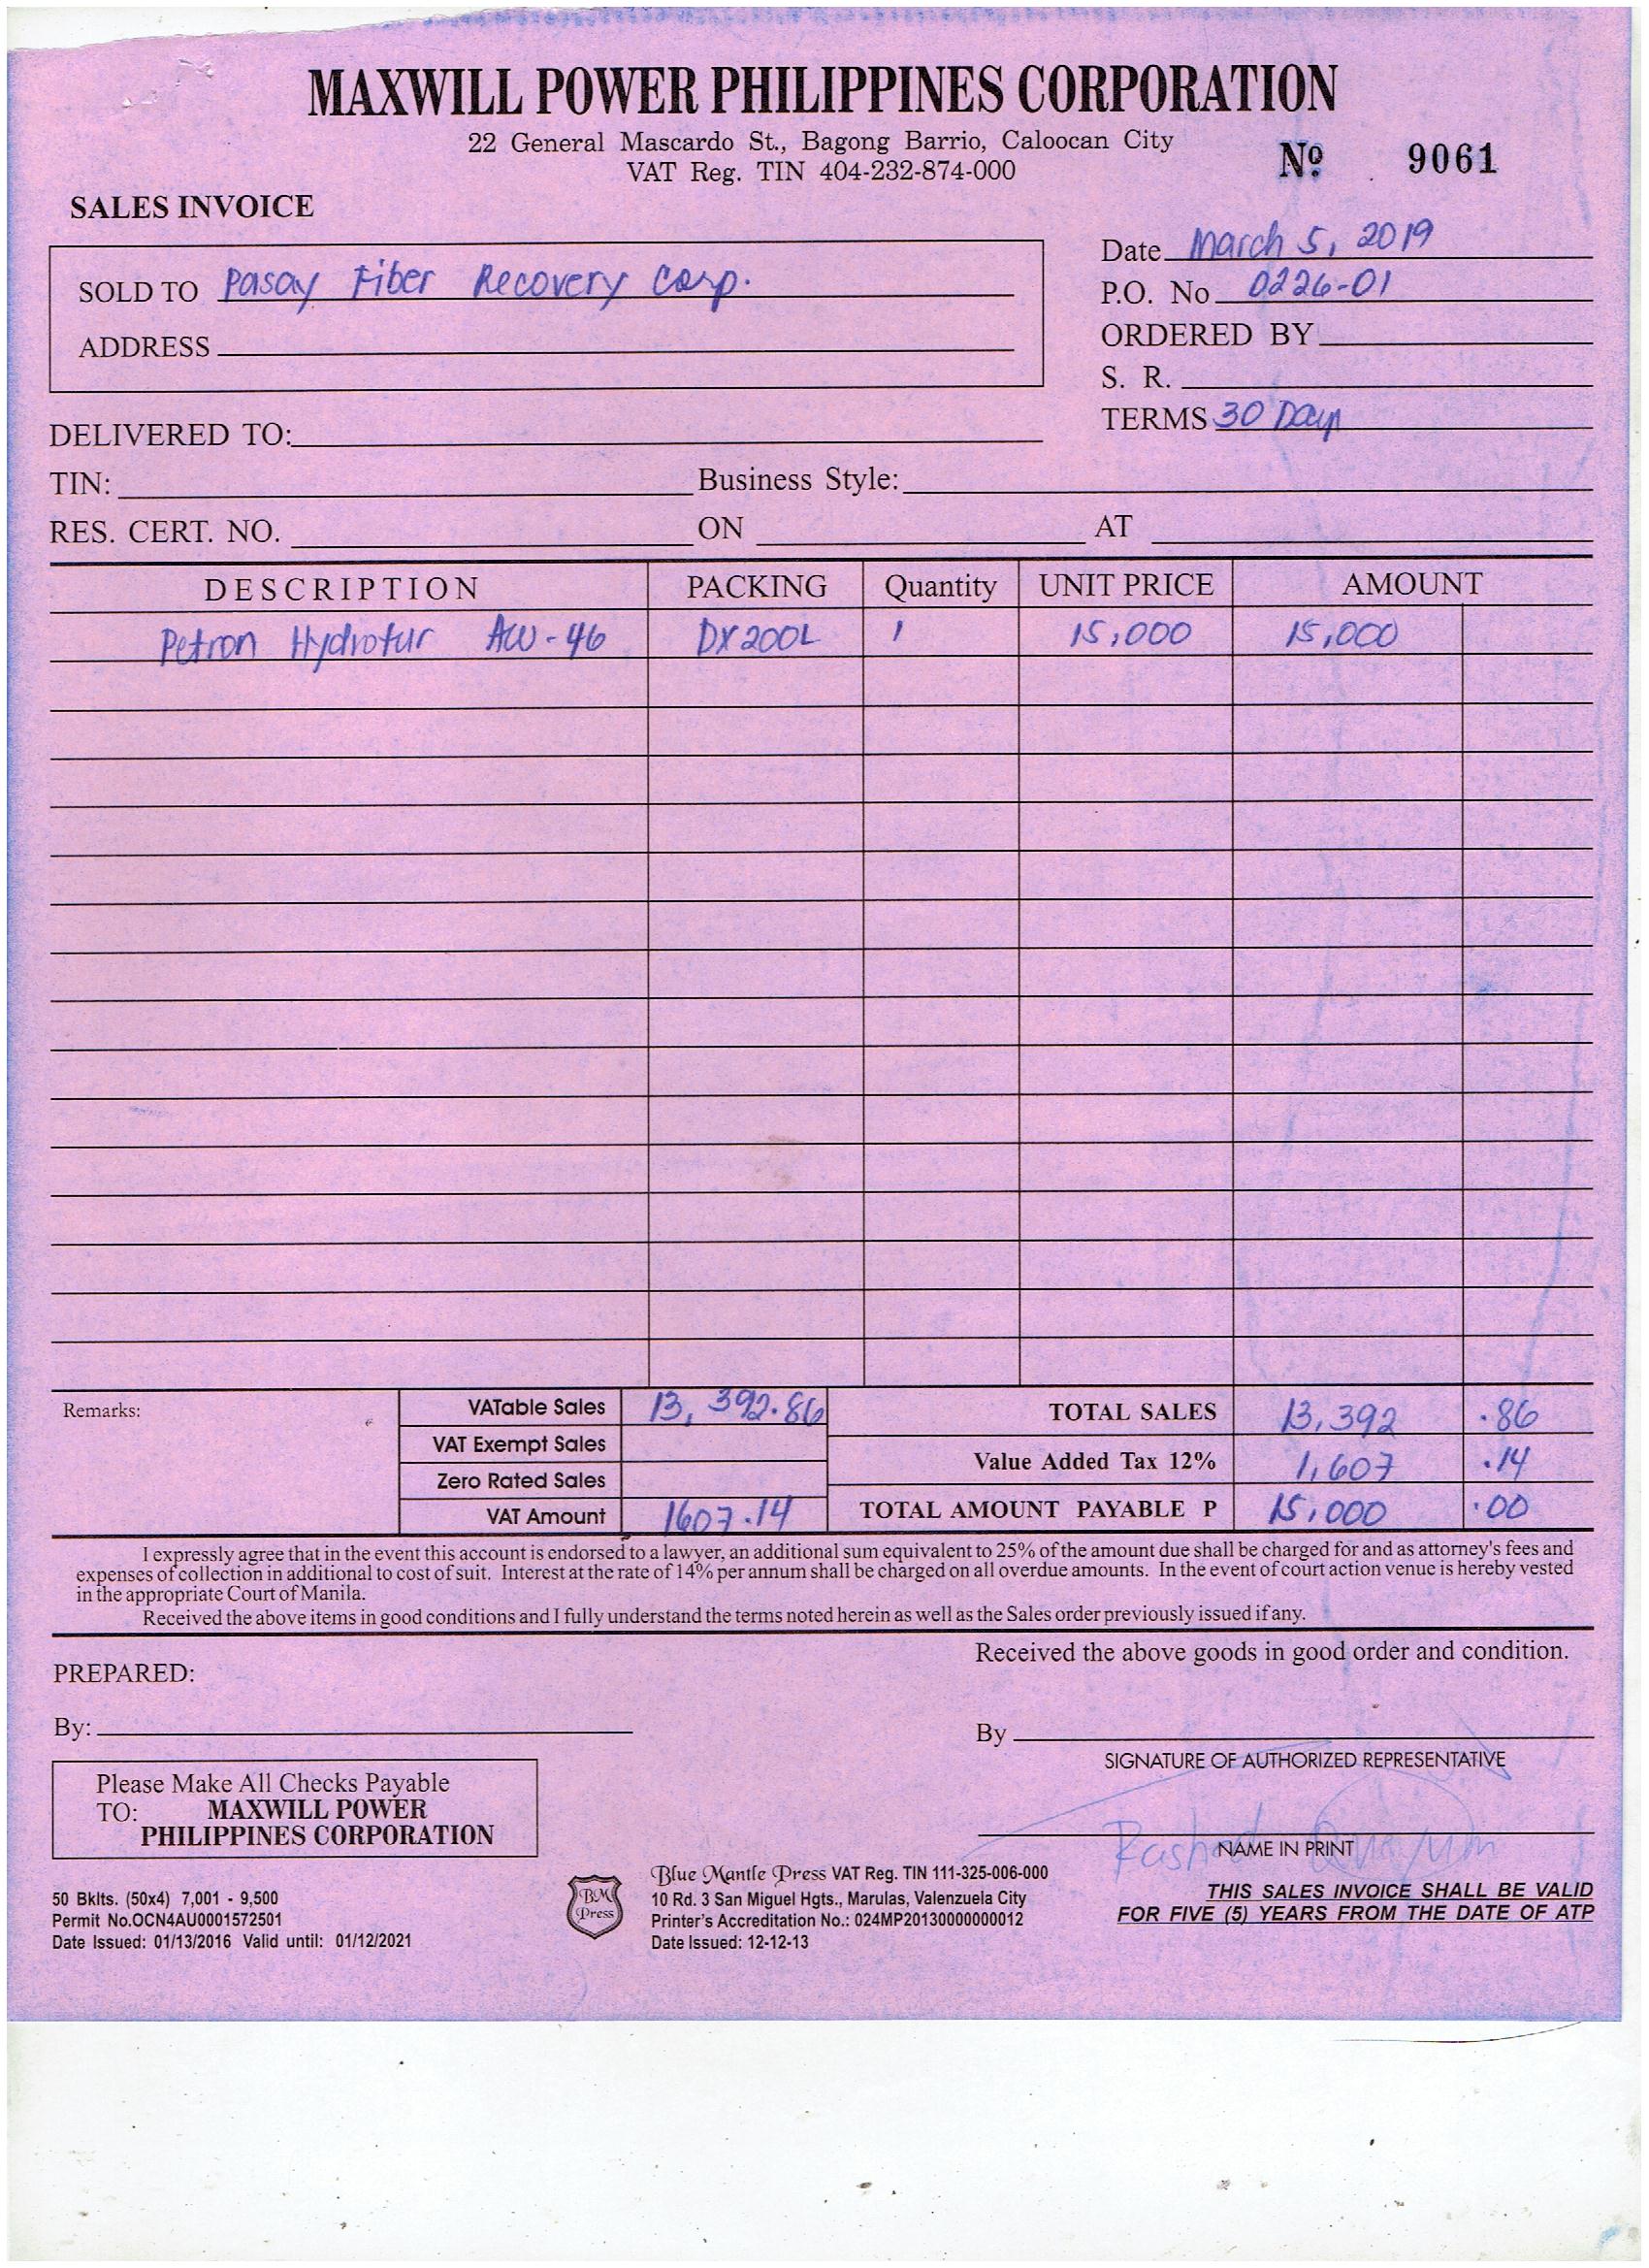 MAXWILL POWER PHILIPPINES CORPORATION
22 General Mascardo St., Bagong Barrio, Caloocan City
VAT Reg. TIN 404-232-874-000
Nº 9061
SALES INVOICE
SOLD TO Pasay Fiber Recovery Corp.
ADDRESS
Date March 5, 2019
P.O. No 0226-01
ORDERED BY
S. R.
TERMS 30 Days
DELIVERED TO:
TIN: Business Style:
RES. CERT. NO. ON AT
DESCRIPTION PACKING Quantity UNIT PRICE AMOUNT
Petron Hydrotur AW-46 DX200L 1 15,000 15,000
Remarks:
VATable Sales 13,392.86
VAT Exempt Sales
Zero Rated Sales
VAT Amount 1607.14
TOTAL SALES 13,392 .86
Value Added Tax 12% 1,607 .14
TOTAL AMOUNT PAYABLE P 15,000 .00
I expressly agree that in the event this account is endorsed to a lawyer, an additional sum equivalent to 25% of the amount due shall be charged for and as attorney's fees and
expenses of collection in additional to cost of suit. Interest at the rate of 14% per annum shall be charged on all overdue amounts. In the event of court action venue is hereby vested
in the appropriate Court of Manila.
Received the above items in good conditions and I fully understand the terms noted herein as well as the Sales order previously issued if any.
PREPARED:
By:
Received the above goods in good order and condition.
By
SIGNATURE OF AUTHORIZED REPRESENTATIVE
NAME IN PRINT
Please Make All Checks Payable
TO: MAXWILL POWER
PHILIPPINES CORPORATION
50 Bklts. (50x4) 7,001 - 9,500
Permit No.OCN4AU0001572501
Date Issued: 01/13/2016 Valid until: 01/12/2021
BM
Press
Blue Mantle Press VAT Reg. TIN 111-325-006-000
10 Rd. 3 San Miguel Hgts., Marulas, Valenzuela City
Printer's Accreditation No.: 024MP20130000000012
Date Issued: 12-12-13
THIS SALES INVOICE SHALL BE VALID
FOR FIVE (5) YEARS FROM THE DATE OF ATP